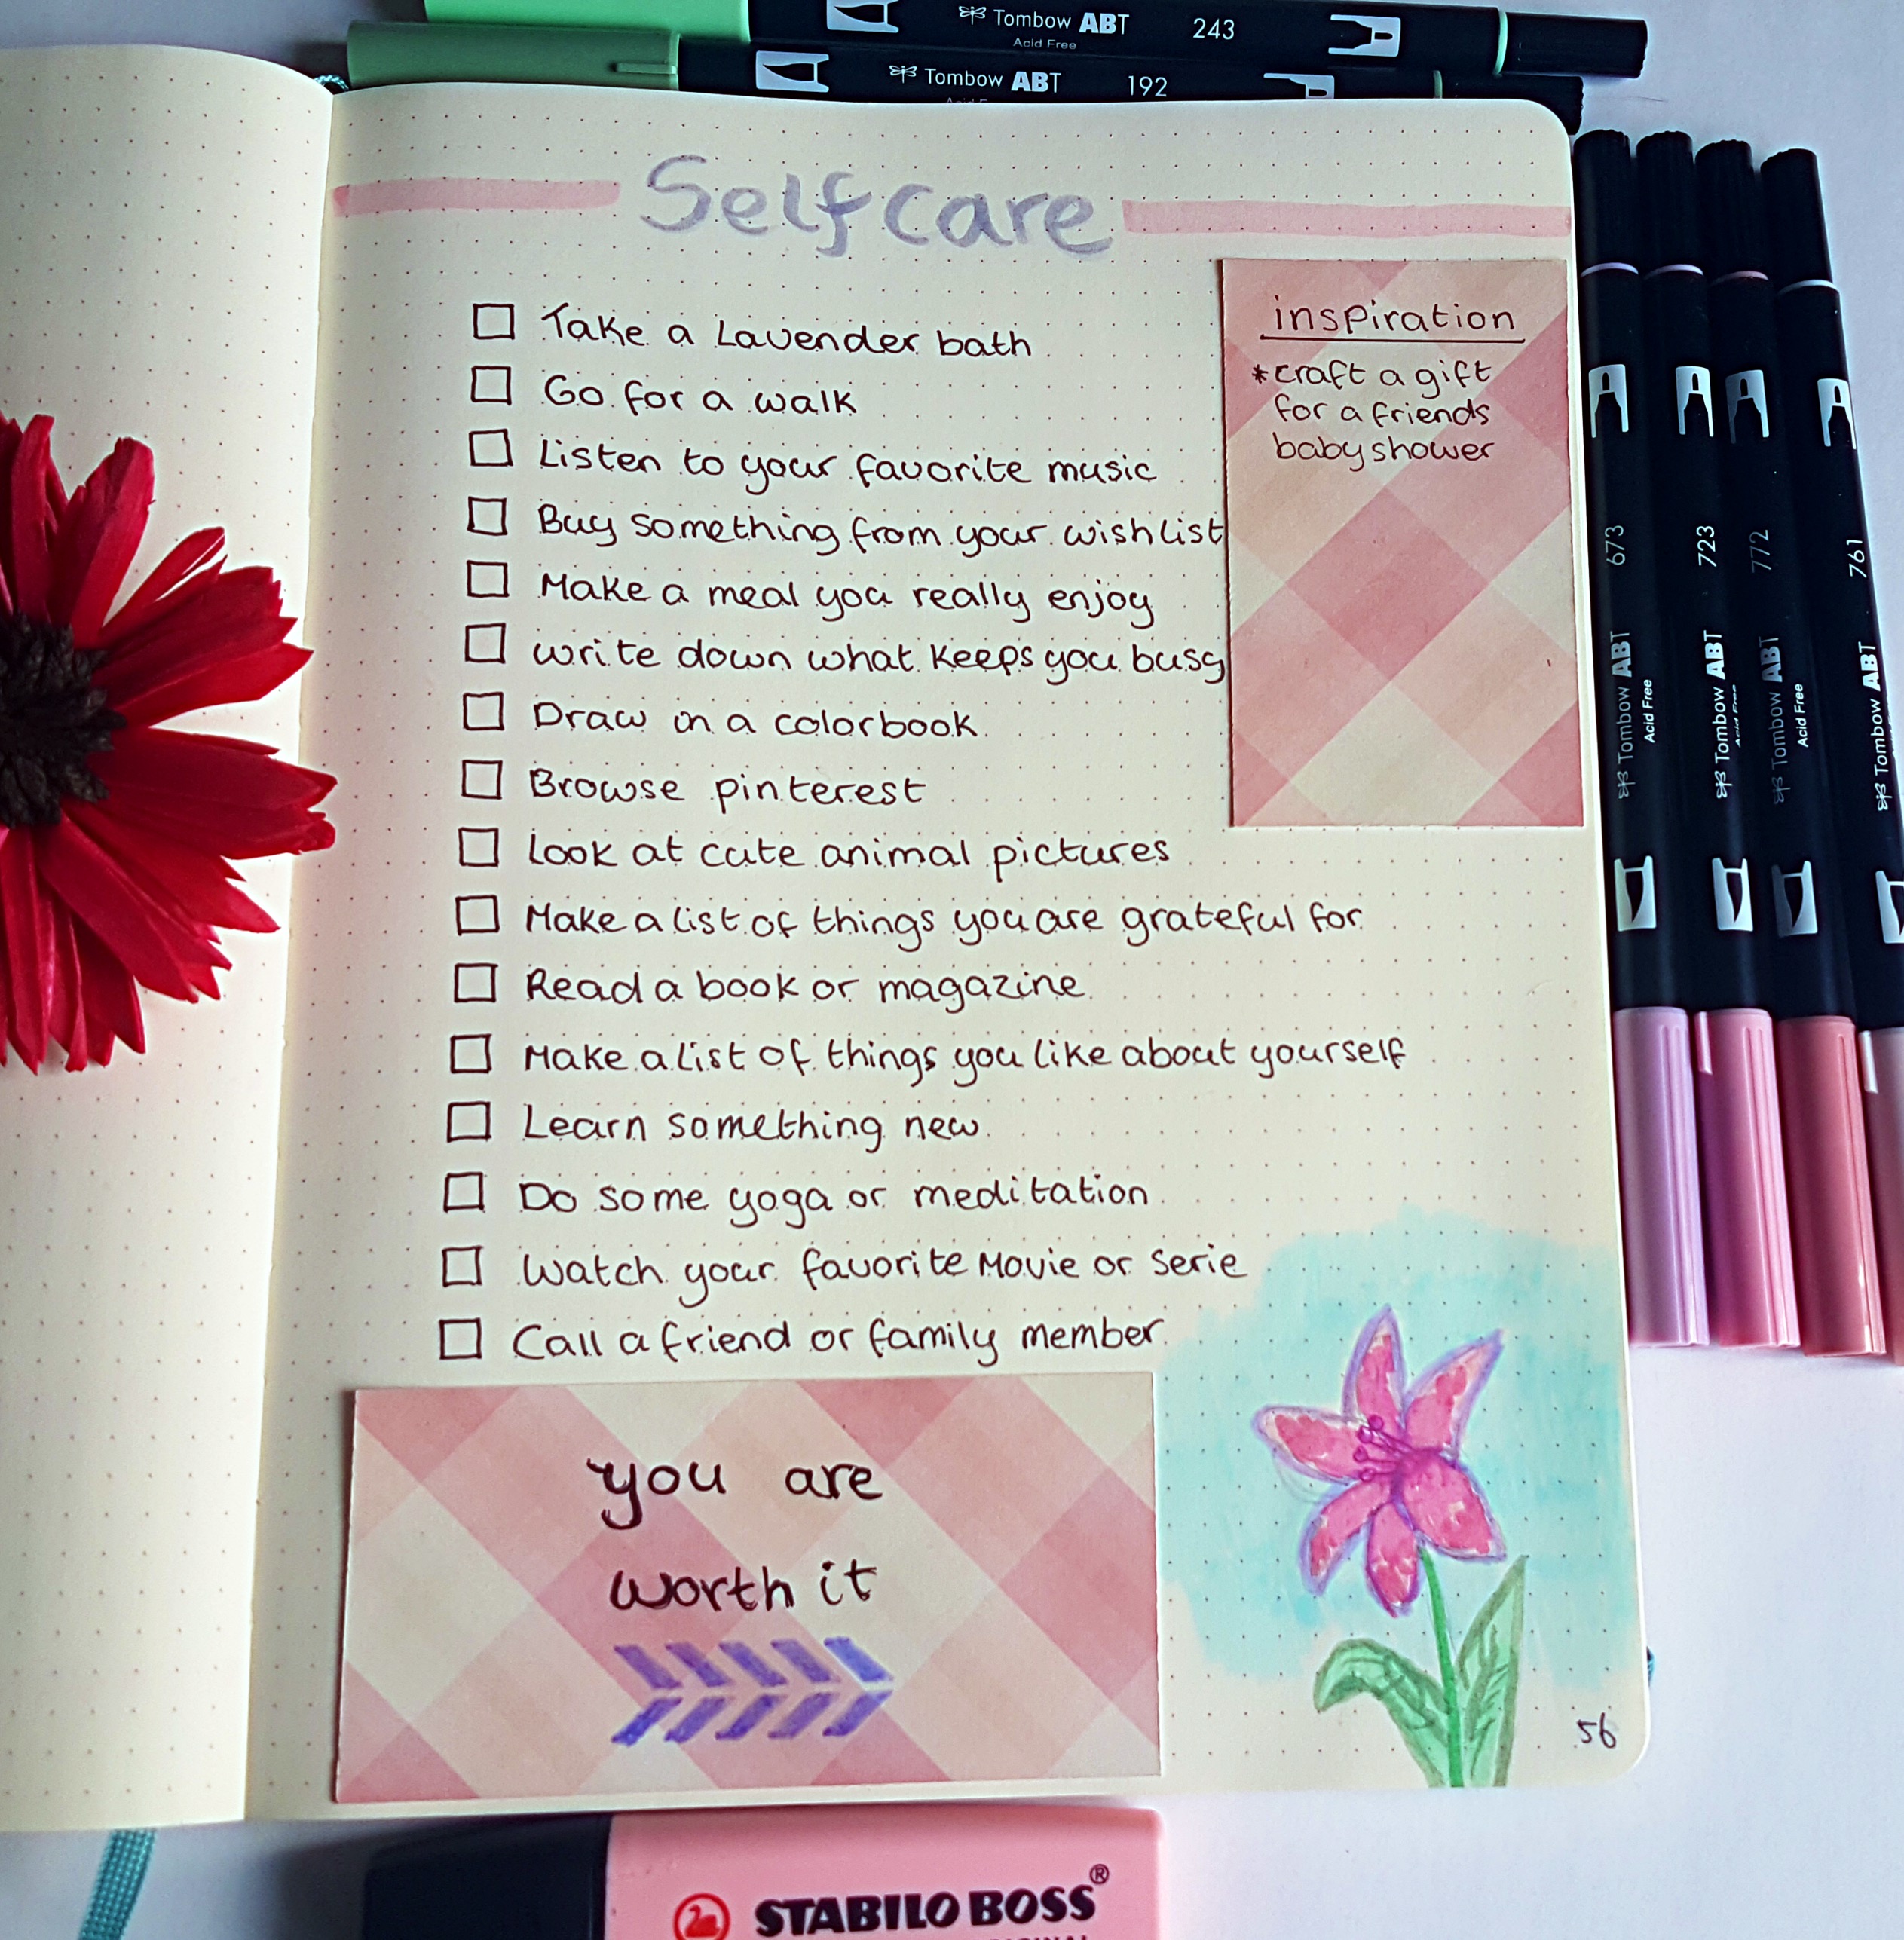 Tombow ABT 243
Acid Free
Tombow ABT 192
Selfcare
Take a Lavender bath
Go for a walk
Listen to your favorite music
Buy something from your wishlist
Make a meal you really enjoy
write down what keeps you busy
Draw in a colorbook
Browse pinterest
Look at cute animal pictures
Make a list of things you are grateful for
Read a book or magazine
Make a list of things you like about yourself
Learn something new
Do some yoga or meditation
Watch your favorite Movie or Serie
Call a friend or family member
inspiration
*craft a gift
for a friends
babyshower
you are
worth it
56
Tombow ABT 673
Acid Free
Tombow ABT 723
Acid Free
Tombow ABT 772
Acid Free
Tombow ABT 761
STABILO BOSS®